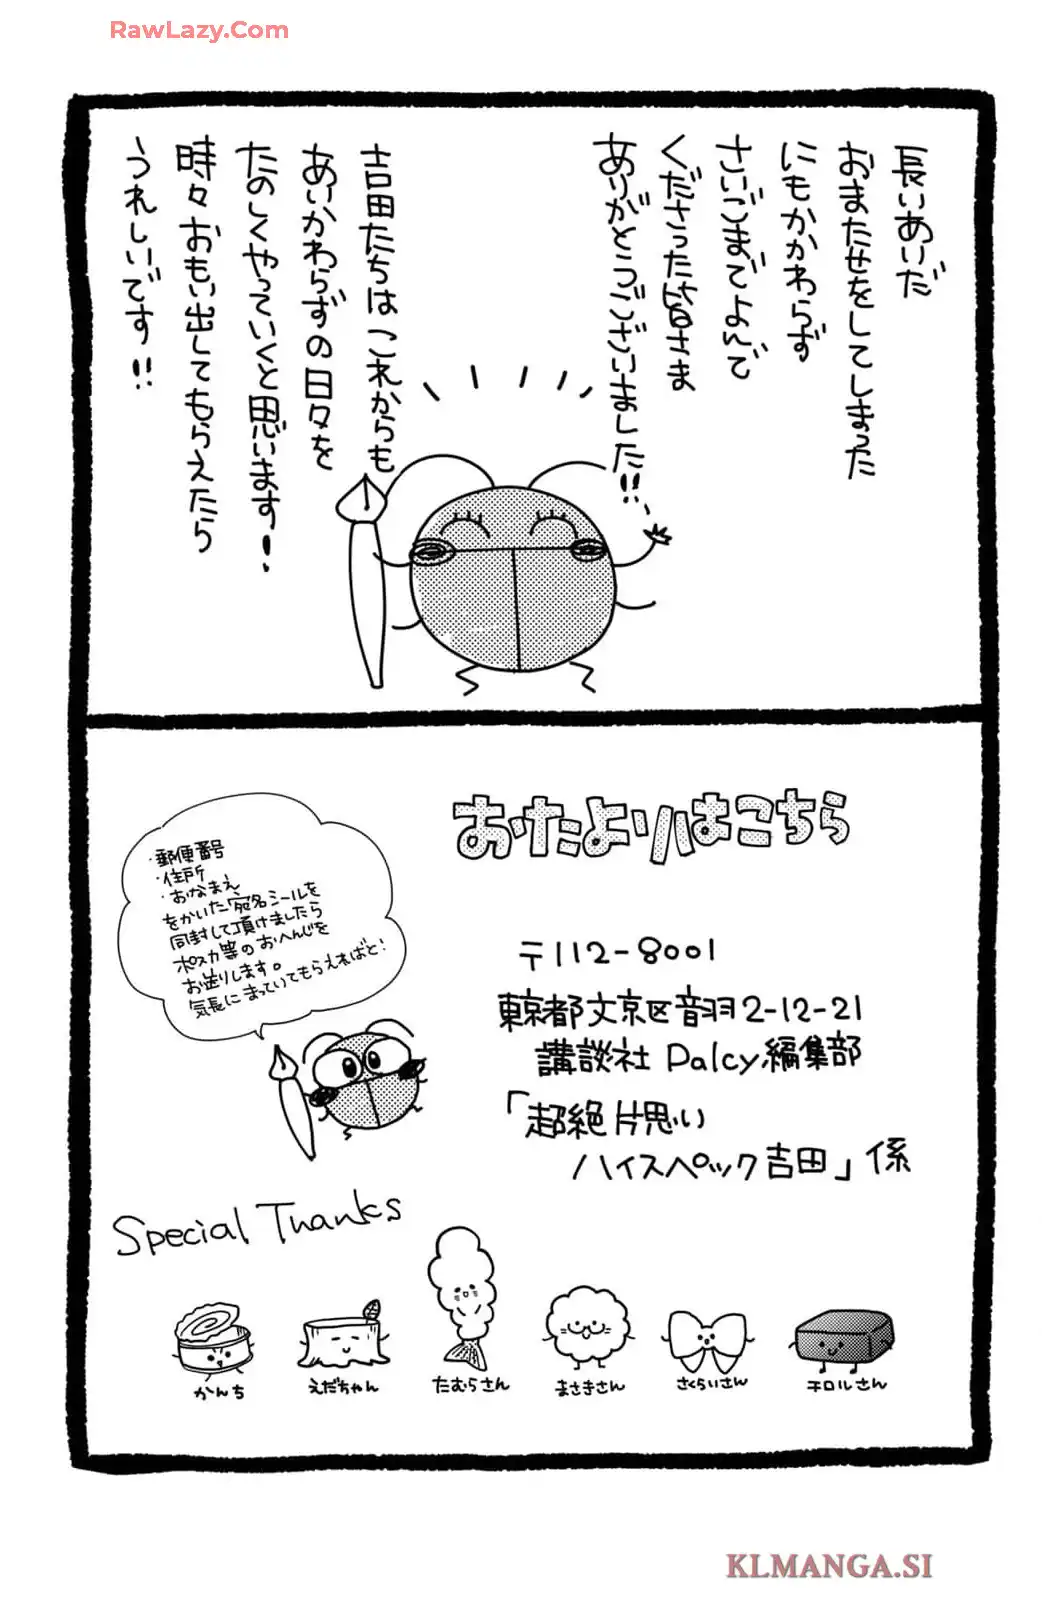 RawLazy.Com
長いあいだ
おまたせをしてしまった
にもかかわらず
さいごまでよんで
くださった皆さま
ありがとうございました!!
吉田たちは これからも
あいかわらずの日々を
たのしくやっていくと思います!
時々 おもい出してもらえたら
うれしいです!!
おたよりはこちら
・郵便番号
・住所
・おなまえ
をかいた宛名シールを
同封して頂けましたら
ポスカ等のおへんじを
お送りします。
気長にまっていてもらえればと!
〒112-8001
東京都文京区音羽2-12-21
講談社 Palcy編集部
「超絶片思い
ハイスペック吉田」係
Special Thanks
かんち
えだちゃん
たむらさん
まさきさん
さくらいさん
チロルさん
KLMANGA.SI